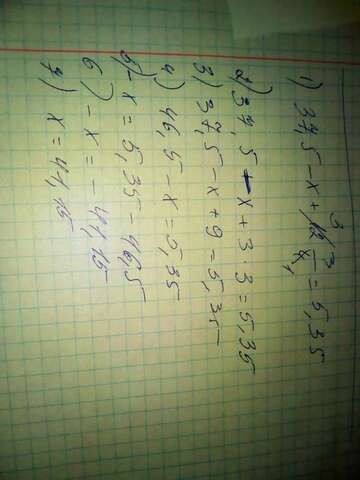 1) 37,5 - x + 12³ · 3/4₁ = 5,35
2) 37,5 - x + 3 · 3 = 5,35
3) 37,5 - x + 9 = 5,35
4) 46,5 - x = 5,35
5) - x = 5,35 - 46,5
6) - x = - 41,15
7) x = 41,15